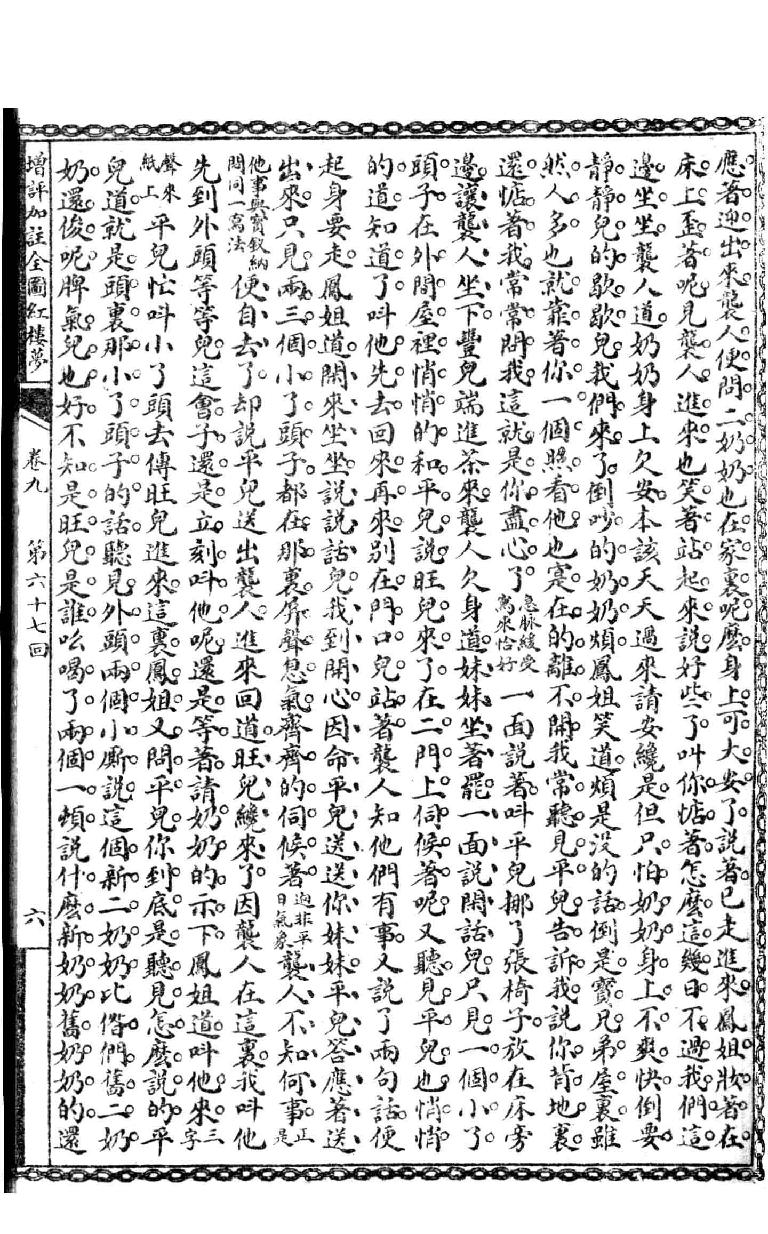 應著迎出來襲人便問二奶奶也在家裏呢麽身上可大安了說著已走進來鳳姐妝著在
床上歪著呢見襲人進來也笑著站起來說好些了叫你惦著怎麽這幾日不過我們這
邊坐坐襲人道奶奶身上欠安本該天天過來請安纔是但只怕奶奶身上不爽快倒要
靜靜兒的歇歇兒我們來了倒吵的奶奶煩鳳姐笑道煩是没的話倒是寳兄弟屋裏雖
然人多也就靠著你一個照看他也寔在的離不開我常聽見平兒告訴我說你背地裏
還惦著我常常問我這就是你盡心了急脉緩受寫來恰好一面說著叫平兒挪了張椅子放在床旁
邊讓襲人坐下豐兒端進茶來襲人欠身道妹妹坐著罷一面說閑話兒只見一個小了
頭子在外間屋裡悄悄的和平兒說旺兒來了在二門上伺候著呢又聽見平兒也悄悄
的道知道了叫他先去回來再來别在門口兒站著襲人知他們有事又說了兩句話便
起身要走鳳姐道閑來坐坐說說話兒我到開心因命平兒送送你妹妹平兒答應著送
出來只見兩三個小了頭子都在那裏屏聲息氣齊齊的伺候著迥非平日氣象襲人不知何事正是
他事與寳釵納悶同一寫法便自去了却說平兒送出襲人進來回道旺兒纔來了因襲人在這裏我叫他
先到外頭等等兒這會子還是立刻叫他呢還是等著請奶奶的示下鳳姐道叫他來三字
聲來紙上平兒忙叫小了頭去傳旺兒進來這裏鳳姐又問平兒你到底是聽見怎麽說的平
兒道就是頭裏那小了頭子的話聽見外頭兩個小厮說這個新二奶奶比偺們舊二奶
奶還俊呢脾氣兒也好不知是旺兒是誰吆喝了兩個一頓說什麽新奶奶舊奶奶的還
增評加註全圖紅樓夢
卷九
第六十七回
六